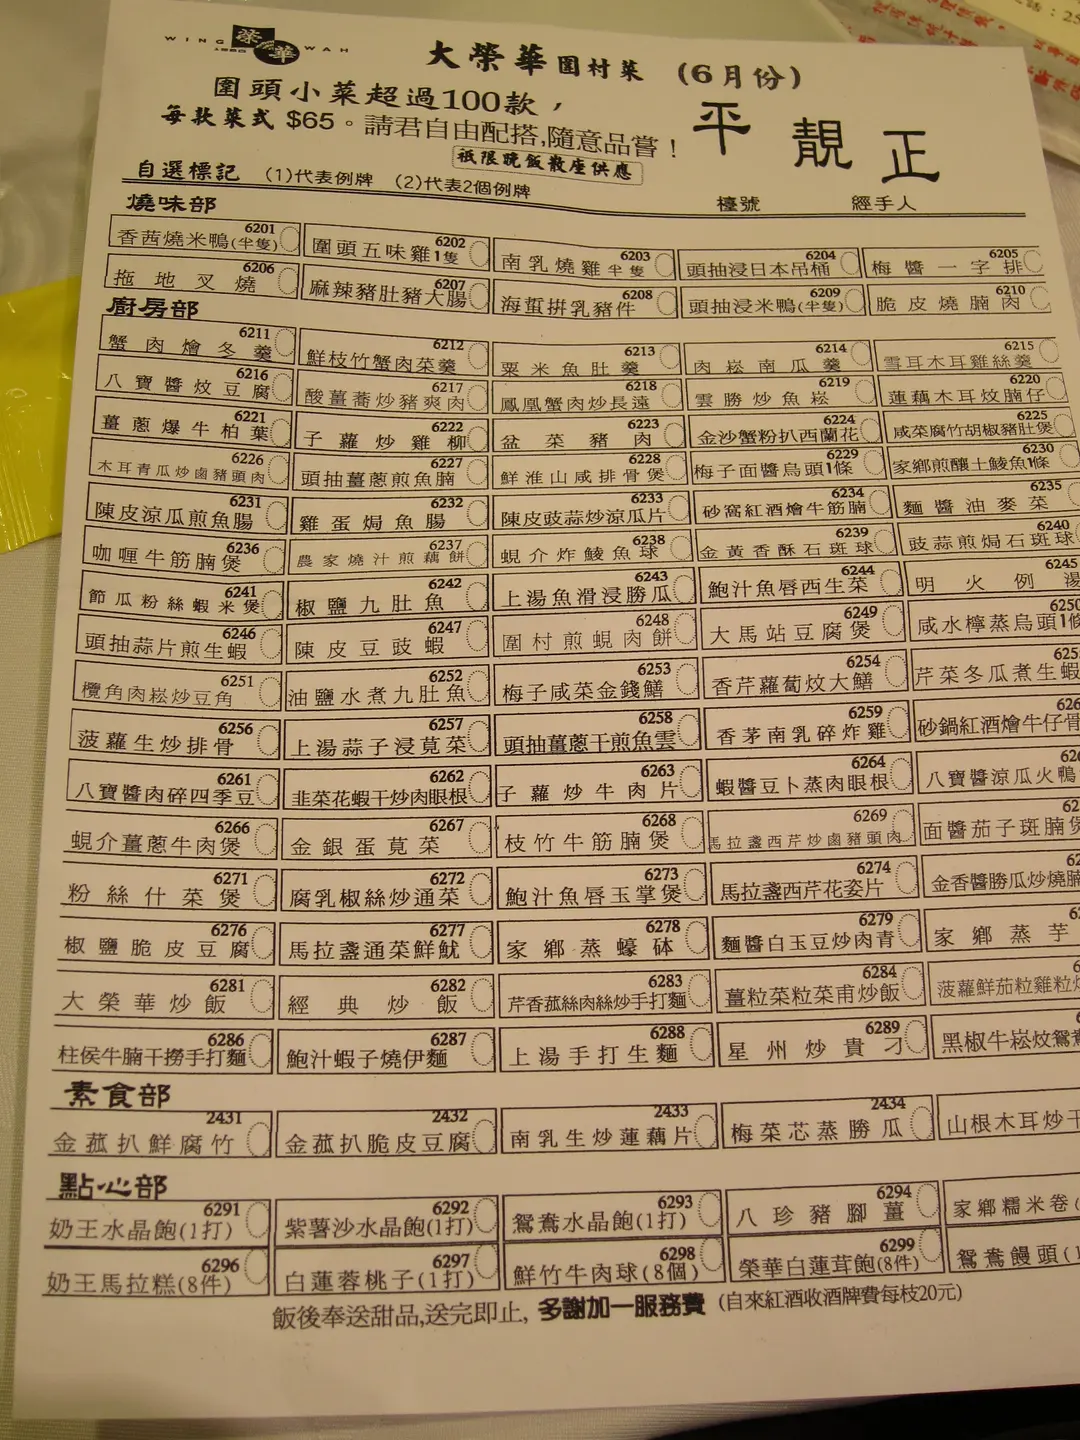 WING 榮華 WAH
大榮華圍村菜 (6月份)
圍頭小菜超過100款，
每款菜式 $65。請君自由配搭,隨意品嘗！
平靚正
祇限晚飯散座供應
自選標記 (1)代表例牌 (2)代表2個例牌
檯號 經手人
燒味部
6201 香茜燒米鴨(半隻)
6202 圍頭五味雞1隻
6203 南乳燒雞半隻
6204 頭抽浸日本吊桶
6205 梅醬一字排
6206 拖地叉燒
6207 麻辣豬肚豬大腸
6208 海蜇拼乳豬件
6209 頭抽浸米鴨(半隻)
6210 脆皮燒腩肉
廚房部
6211 蟹肉燴冬羹
6212 鮮枝竹蟹肉菜羹
6213 粟米魚肚羹
6214 肉崧南瓜羹
6215 雪耳木耳雞絲羹
6216 八寶醬炆豆腐
6217 酸薑蕎炒豬爽肉
6218 鳳凰蟹肉炒長遠
6219 雲勝炒魚崧
6220 蓮藕木耳炆腩仔
6221 薑蔥爆牛柏葉
6222 子蘿炒雞柳
6223 盆菜豬肉
6224 金沙蟹粉扒西蘭花
6225 咸菜腐竹胡椒豬肚煲
6226 木耳青瓜炒鹵豬頭肉
6227 頭抽薑蔥煎魚腩
6228 鮮淮山咸排骨煲
6229 梅子面醬烏頭1條
6230 家鄉煎釀土鯪魚1條
6231 陳皮涼瓜煎魚腸
6232 雞蛋焗魚腸
6233 陳皮豉蒜炒涼瓜片
6234 砂窩紅酒燴牛筋腩
6235 麵醬油麥菜
6236 咖喱牛筋腩煲
6237 農家燒汁煎藕餅
6238 蜆介炸鯪魚球
6239 金黃香酥石斑球
6240 豉蒜煎焗石斑球
6241 節瓜粉絲蝦米煲
6242 椒鹽九肚魚
6243 上湯魚滑浸勝瓜
6244 鮑汁魚唇西生菜
6245 明火例湯
6246 頭抽蒜片煎生蝦
6247 陳皮豆豉蝦
6248 圍村煎蜆肉餅
6249 大馬站豆腐煲
6250 咸水檸蒸烏頭1條
6251 欖角肉崧炒豆角
6252 油鹽水煮九肚魚
6253 梅子咸菜金錢鱔
6254 香芹蘿蔔炆大鱔
芹菜冬瓜煮生蝦
6256 菠蘿生炒排骨
6257 上湯蒜子浸莧菜
6258 頭抽薑蔥干煎魚雲
6259 香茅南乳碎炸雞
砂鍋紅酒燴牛仔骨
6261 八寶醬肉碎四季豆
6262 韭菜花蝦干炒肉眼根
6263 子蘿炒牛肉片
6264 蝦醬豆卜蒸肉眼根
八寶醬涼瓜火鴨
6266 蜆介薑蔥牛肉煲
6267 金銀蛋莧菜
6268 枝竹牛筋腩煲
6269 馬拉盞西芹炒鹵豬頭肉
面醬茄子斑腩煲
6271 粉絲什菜煲
6272 腐乳椒絲炒通菜
6273 鮑汁魚唇玉掌煲
6274 馬拉盞西芹花姿片
金香醬勝瓜炒燒腩
6276 椒鹽脆皮豆腐
6277 馬拉盞通菜鮮魷
6278 家鄉蒸蠔砵
6279 麵醬白玉豆炒肉青
家鄉蒸芋
6281 大榮華炒飯
6282 經典炒飯
6283 芹香菰絲肉絲炒手打麵
6284 薑粒菜粒菜甫炒飯
菠蘿鮮茄粒雞粒炒
6286 柱侯牛腩干撈手打麵
6287 鮑汁蝦子燒伊麵
6288 上湯手打生麵
6289 星州炒貴刁
黑椒牛崧炆鴛鴦
素食部
2431 金菰扒鮮腐竹
2432 金菰扒脆皮豆腐
2433 南乳生炒蓮藕片
2434 梅菜芯蒸勝瓜
山根木耳炒干
點心部
6291 奶王水晶飽(1打)
6292 紫薯沙水晶飽(1打)
6293 鴛鴦水晶飽(1打)
6294 八珍豬腳薑
家鄉糯米卷
6296 奶王馬拉糕(8件)
6297 白蓮蓉桃子(1打)
6298 鮮竹牛肉球(8個)
6299 榮華白蓮茸飽(8件)
鴛鴦饅頭(1
飯後奉送甜品,送完即止, 多謝加一服務費 (自來紅酒收酒牌費每枝20元)